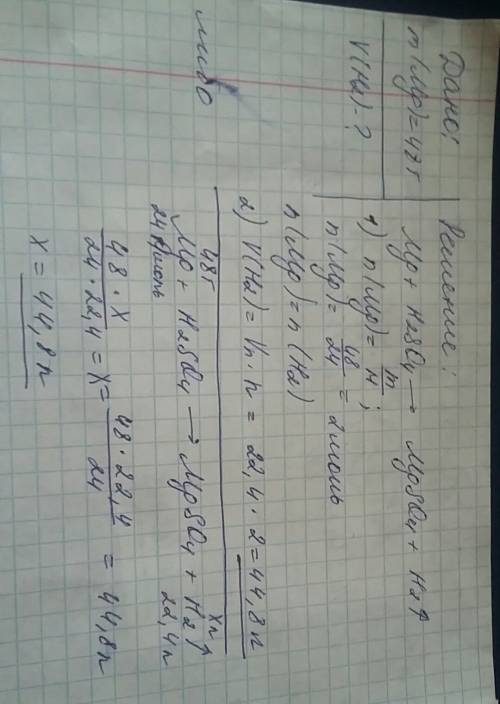 Дано:
m(Mg)=48г
V(H2)-?
Решение:
Mg + H2SO4 → MgSO4 + H2↑
1) n(Mg) = m/M ;
n(Mg) = 48/24 = 2 моль
n(Mg) = n(H2)
2) V(H2) = Vn · n = 22,4 · 2 = 44,8 л
либо
48г xл
Mg + H2SO4 → MgSO4 + H2↑
24г/моль 22,4л
48 · x / 24 · 22,4 = x = 48 · 22,4 / 24 = 44,8л
x = 44,8л